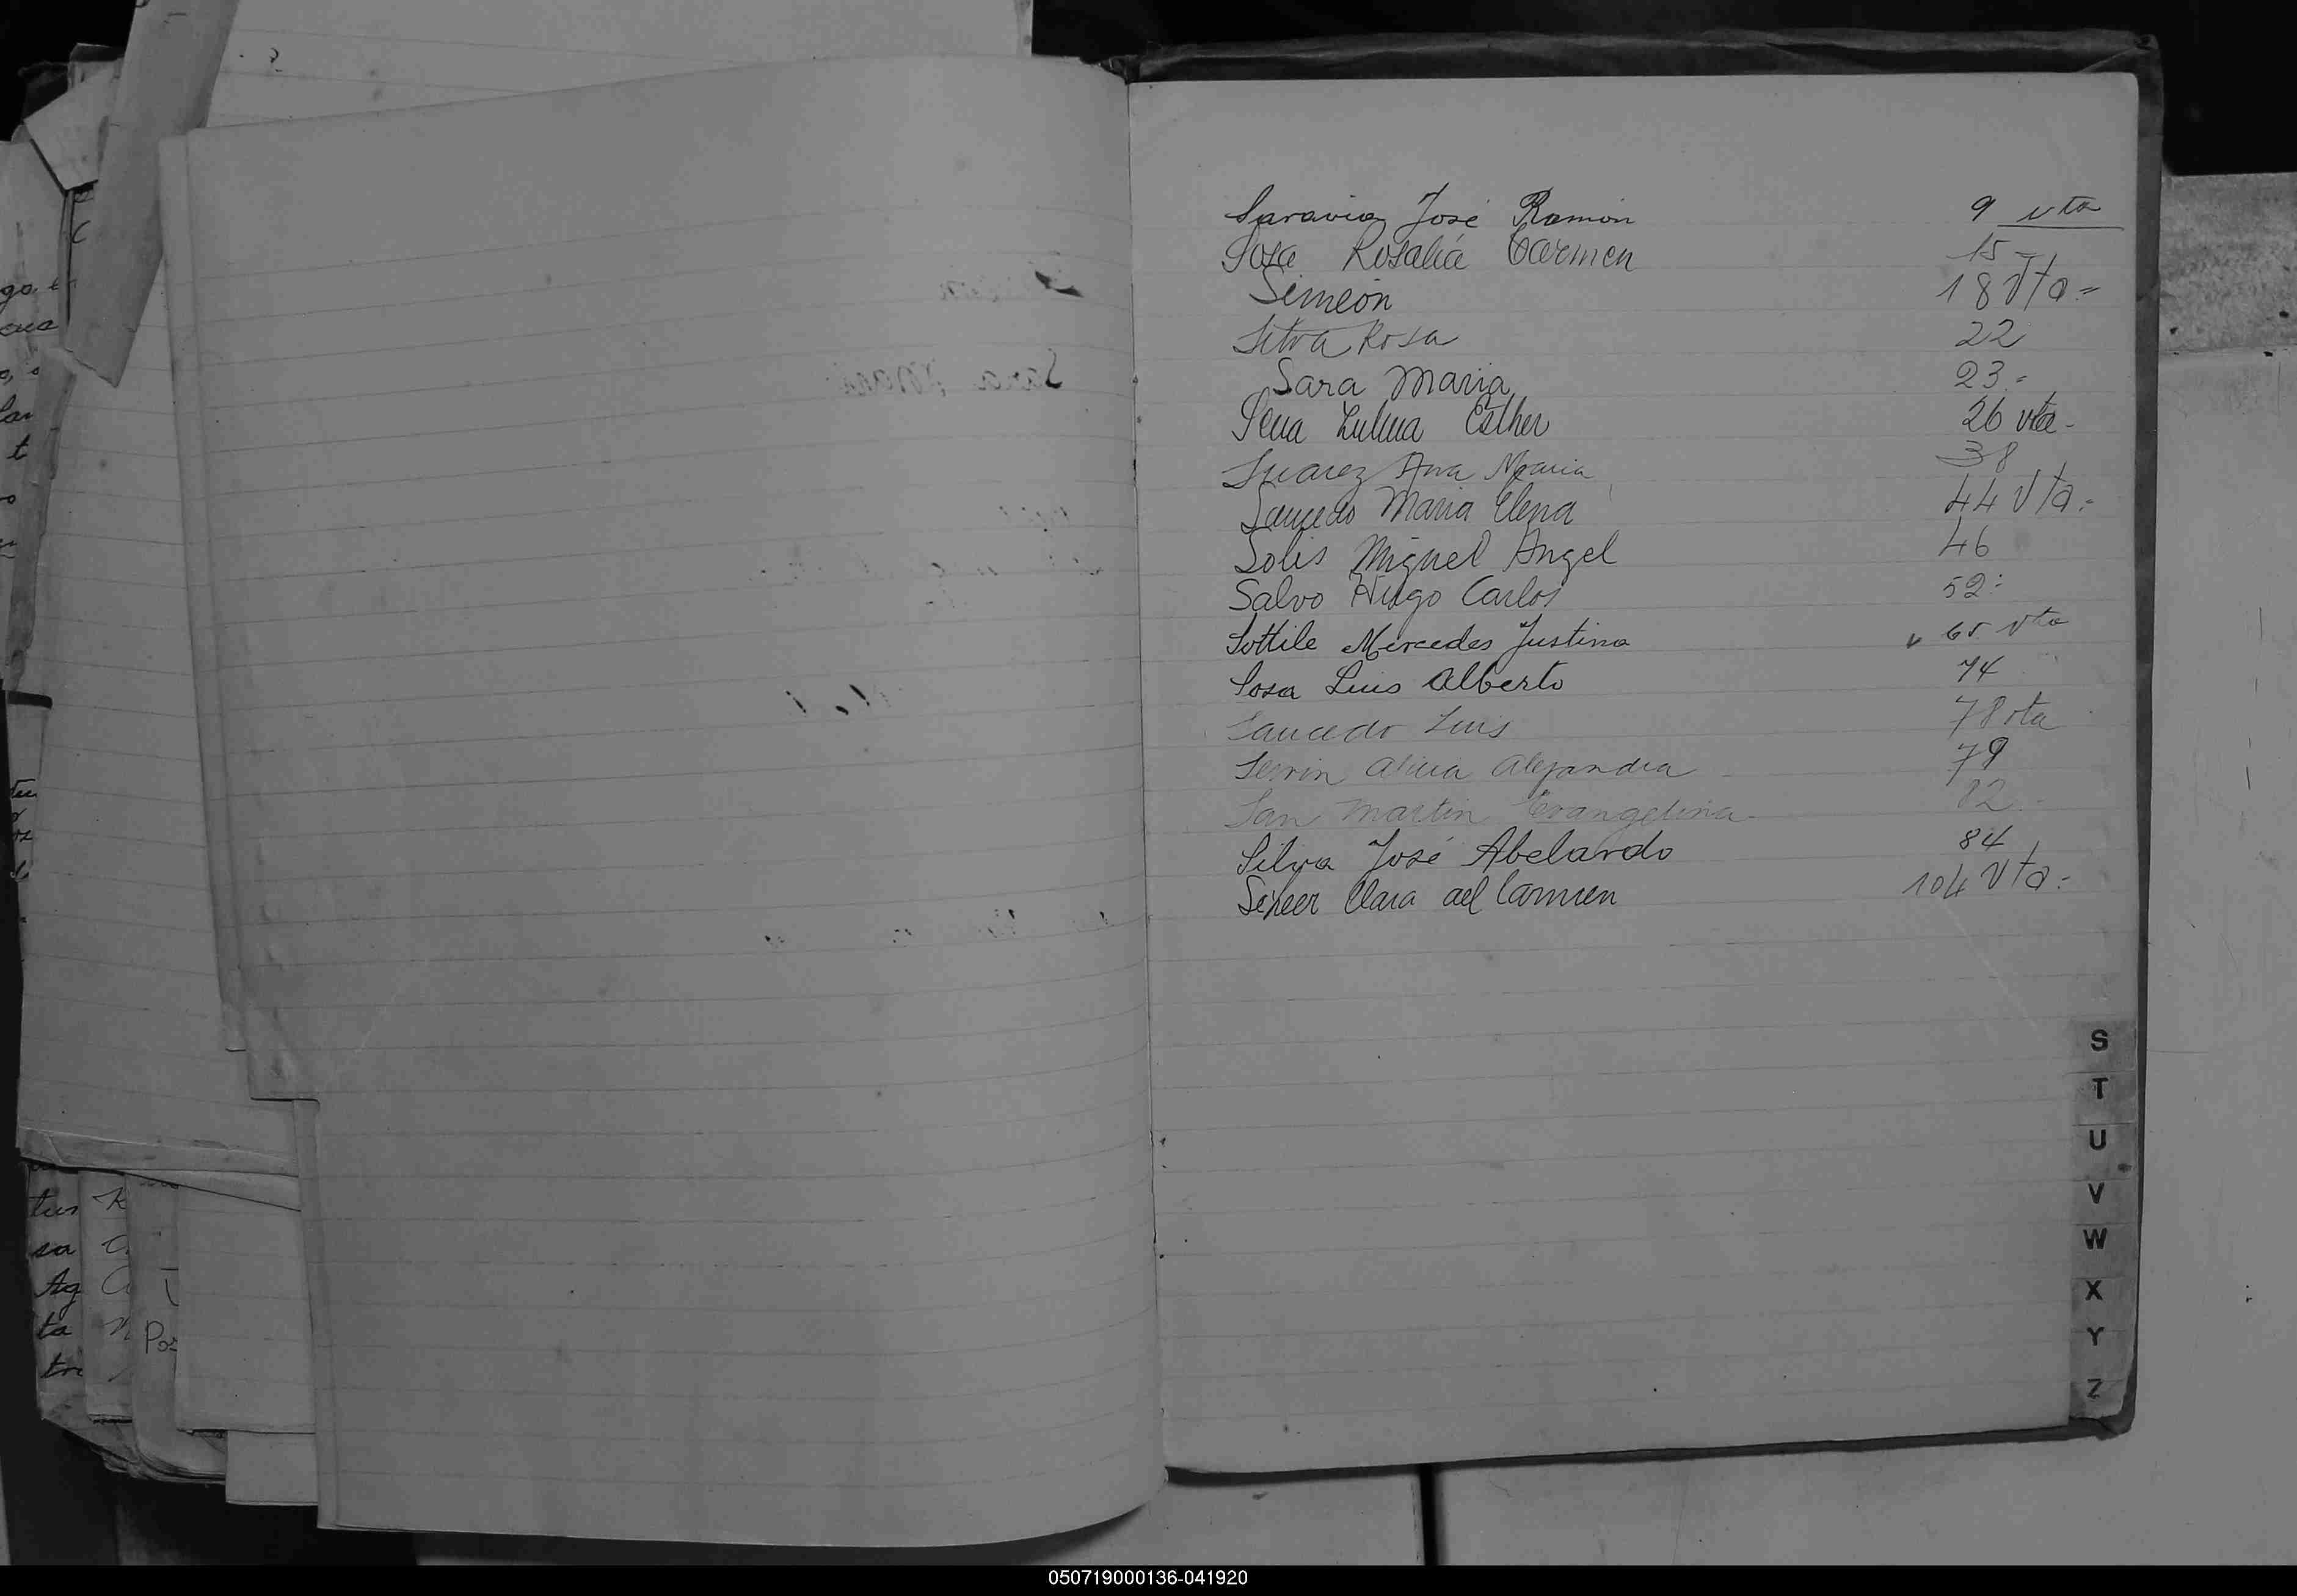 Saravia José Ramón 9 vta
Sosa Rosalía Carmen 15 -
Simeón 18 Vta =
Silva Rosa 22
Sara Maria 23 =
Sena Zulma Esther 26 vta -
Suarez Ana Maria 38
Saucedo Maria Elena 44 Vta =
Solis Miguel Angel 46
Salvo Hugo Carlos 52 =
Sottile Mercedes Justina 65 vta
Sosa Luis Alberto 74
Saucedo Luis 78 vta
Alicia Alejandra 79
San Martin Evangelina 82 -
Silva José Abelardo 84
Scheer Clara del Carmen 104 Vta =
S
T
U
V
W
X
Y
Z
050719000136-041920